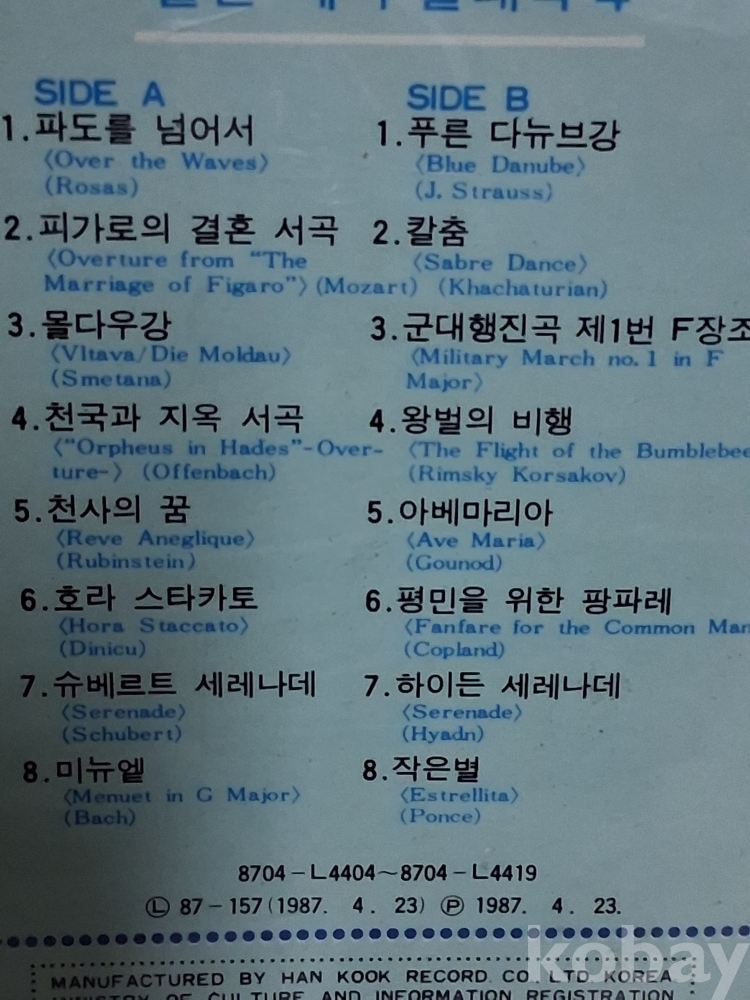 SIDE A
1.파도를 넘어서
〈Over the Waves〉
(Rosas)
2.피가로의 결혼 서곡
〈Overture from "The
Marriage of Figaro"〉(Mozart)
3.몰다우강
〈Vltava/Die Moldau〉
(Smetana)
4.천국과 지옥 서곡
〈"Orpheus in Hades"-Over-
ture-〉 (Offenbach)
5.천사의 꿈
〈Reve Aneglique〉
(Rubinstein)
6.호라 스타카토
〈Hora Staccato〉
(Dinicu)
7.슈베르트 세레나데
〈Serenade〉
(Schubert)
8.미뉴엩
〈Menuet in G Major〉
(Bach)
SIDE B
1.푸른 다뉴브강
〈Blue Danube〉
(J. Strauss)
2.칼춤
〈Sabre Dance〉
(Khachaturian)
3.군대행진곡 제1번 F장조
〈Military March no. 1 in F
Major〉
4.왕벌의 비행
〈The Flight of the Bumblebee
(Rimsky Korsakov)
5.아베마리아
〈Ave Maria〉
(Gounod)
6.평민을 위한 팡파레
〈Fanfare for the Common Man
(Copland)
7.하이든 세레나데
〈Serenade〉
(Hyadn)
8.작은별
〈Estrellita〉
(Ponce)
8704-L4404~8704-L4419
Ⓛ 87-157(1987. 4. 23) Ⓟ 1987. 4. 23.
MANUFACTURED BY HAN KOOK RECORD CO. LTD KOREA
MINISTRY OF CULTURE AND INFORMATION REGISTRATION
kobay